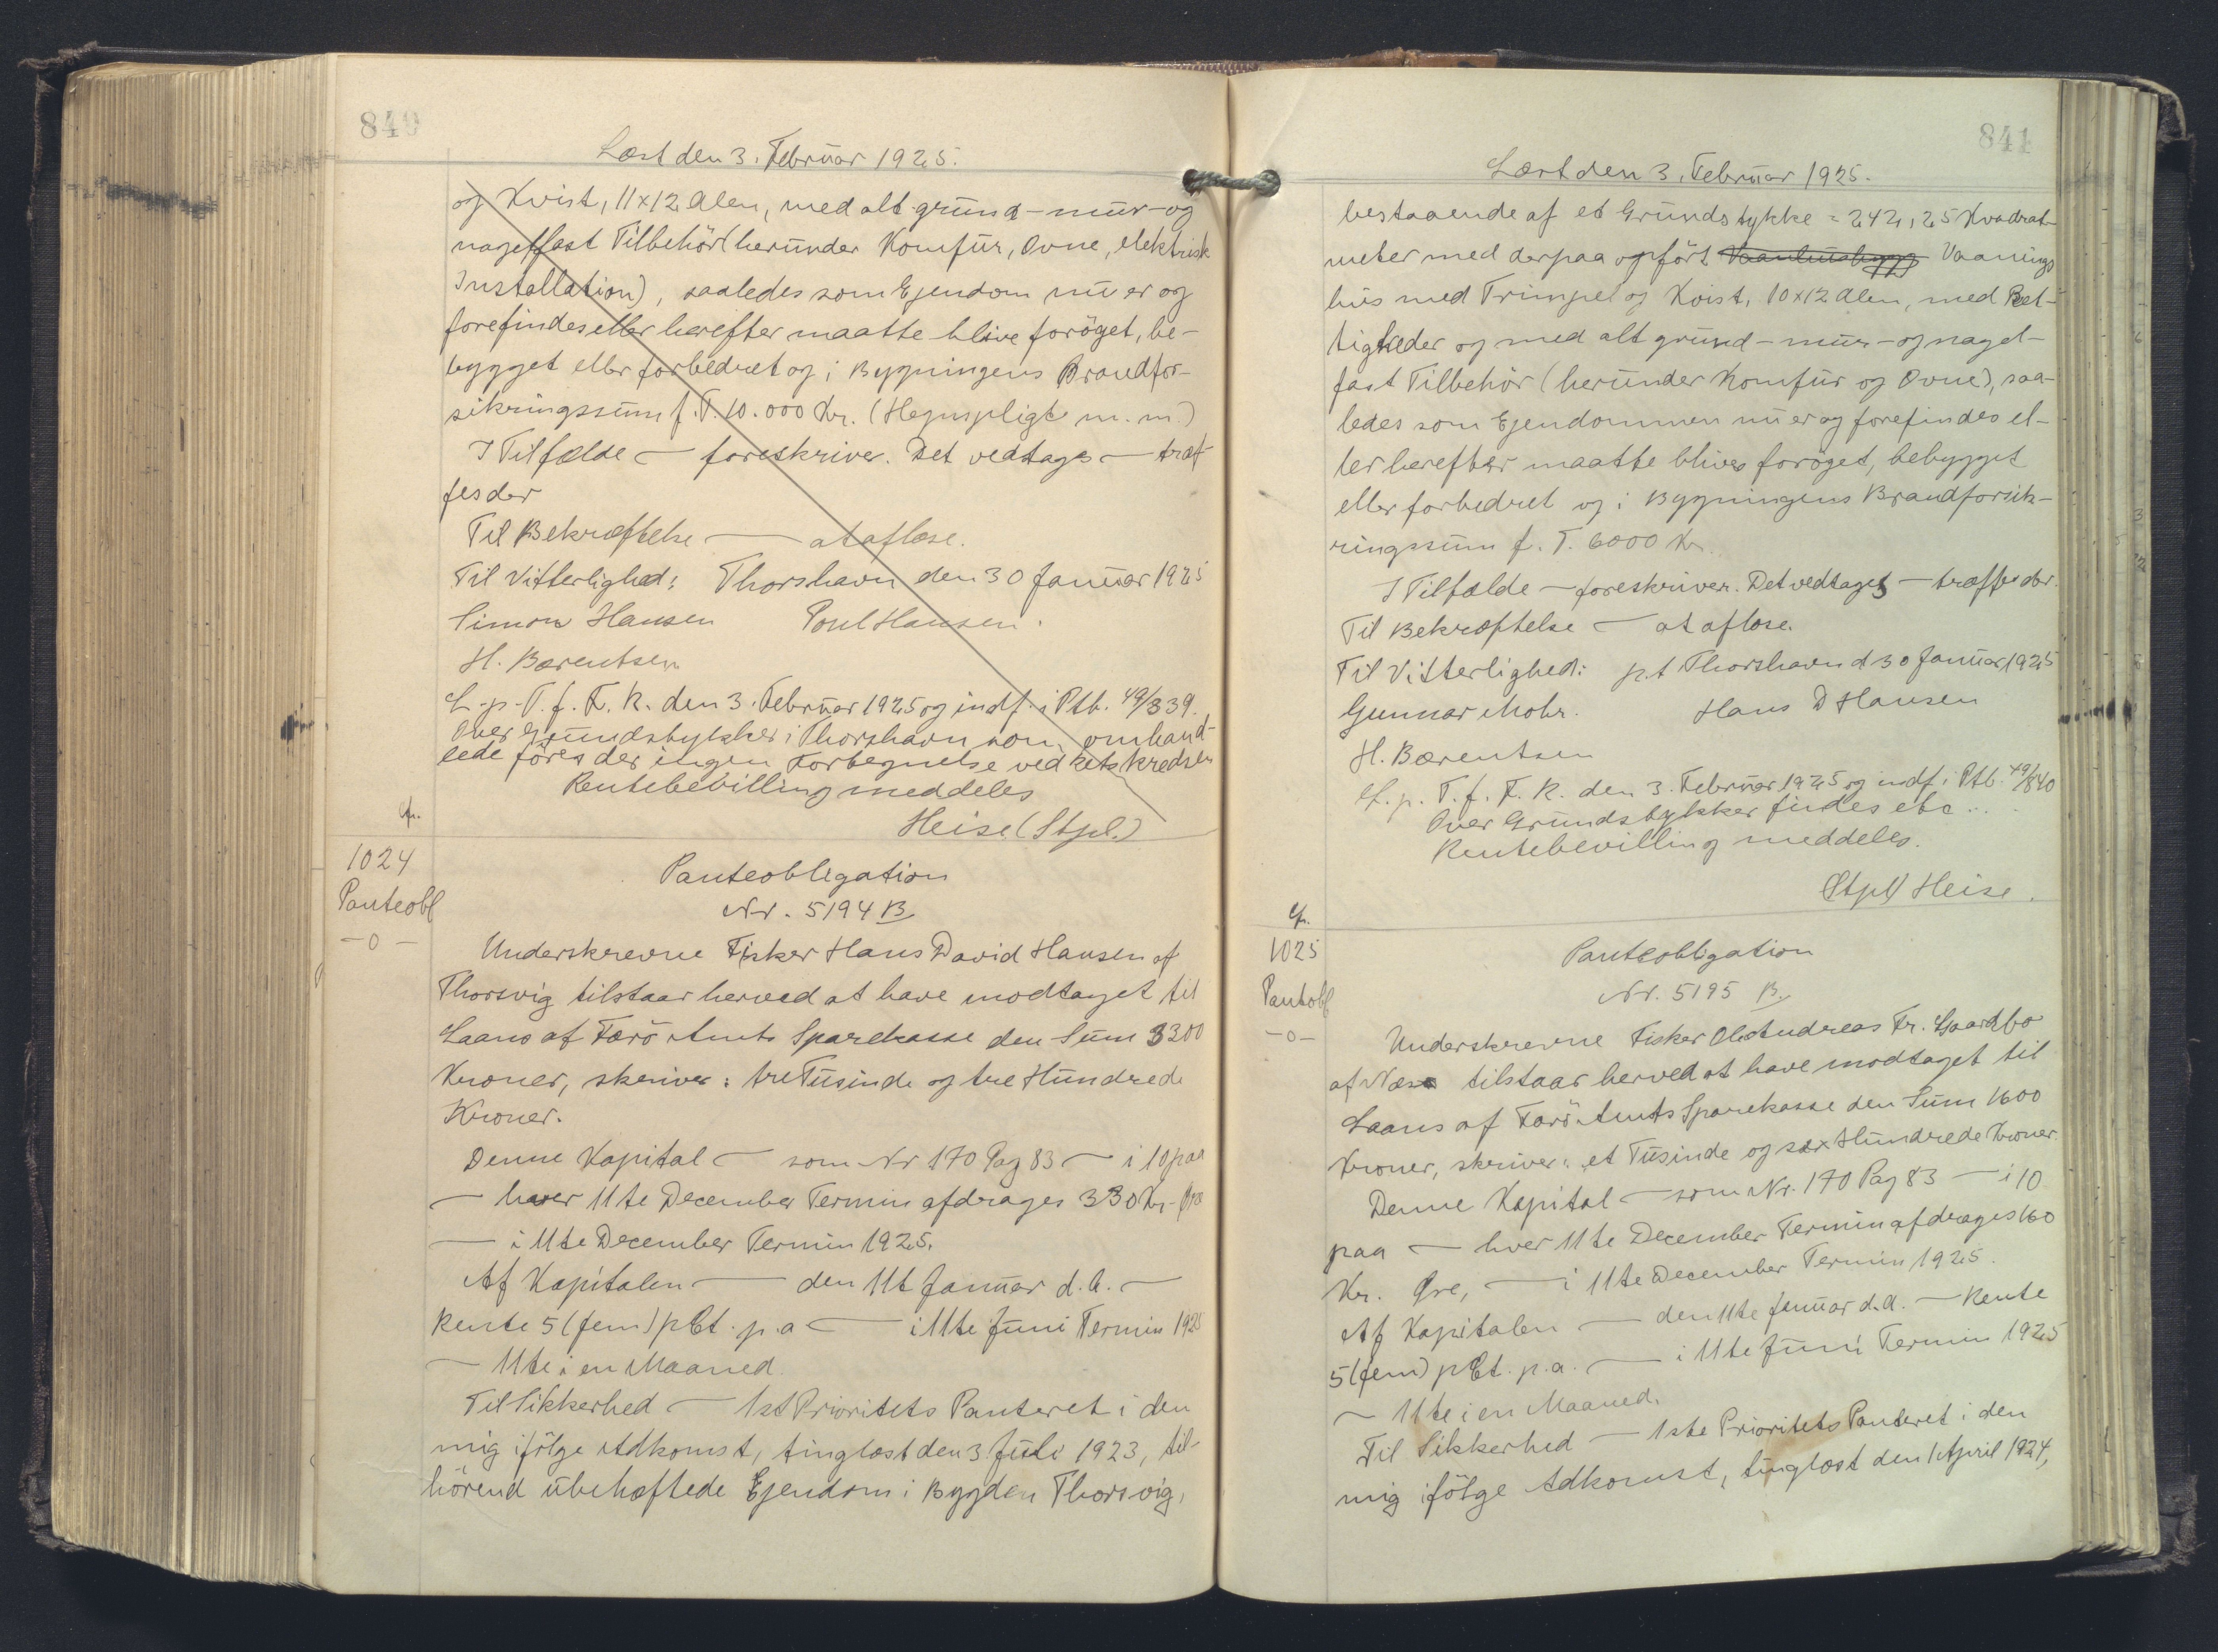 840
Læst den 3. Februar 1925.
og Kvist, 11x12 Alen, med alt grund-mur-og
nagelfast Tilbehör (herunder Komfur, Ovne, elektrisk
Installation), saaledes som Ejendom nu er og
forefindes eller herefter maatte blive foröget, be-
bygget eller forbedret og i Bygningens Brandfor-
sikringssum f. T. 10.000 Kr. (Hegnspligt m. m.)
I Tilfælde — foreskriver. Det vedtages — træf-
fes der
Til Bekræftelse — at aflæse.
Til Vitterlighed: Thorshavn den 30 Januar 1925
Simon Hansen Poul Hansen.
H. Bærentsen
L. p. T. f. F. R. den 3. Februar 1925 og indf. i Ptb. 49/839.
Over Grundstykker i Thorshavn som omhand-
lede föres der ingen Fortegnelse ved Retskredsen
Rentebevilling meddeles
Heise (Stpl.)
cfr.
1024
Panteobl
-o-
Panteobligation
Nr. 5194 B
Underskrevne Fisker Hans David Hansen af
Thorsvig tilstaar herved at have modtaget til
Laans af Færö Amts Sparekasse den Sum 3300
Kroner, skriver: tre Tusinde og tre Hundrede
Kroner.
Denne Kapital — som Nr 170 Pag 83 — i 10 paa
— hver 11te December Termin afdrages 330 Kr. Øre
— i 11te December Termin 1925.
Af Kapitalen — den 11t Januar d. A. —
Rente 5 (fem) pCt. p. a — i 11te Juni Termin 1925
— 11te i en Maaned
Til Sikkerhed — 1st Prioritets Panteret i den
mig ifölge Adkomst, tinglæst den 3 Juli 1923, til-
hörend ubehæftede Ejendom i Bygden Thorsvig,
841
Læst den 3. Februar 1925.
bestaaende af et Grundstykke = 242,25 Kvadrat-
meter med derpaa opfört Vaanings
hus med Trimpel og Kvist, 10x12 Alen, med Ret-
tigheder og med alt grund-mur-og nagel-
fast Tilbehör (herunder Komfur og Ovne), saa-
ledes som Ejendommen nu er og forefindes el-
ler herefter maatte blive foröget, bebygget
eller forbedret og i Bygningens Brandforsik-
ringssum f. T. 6000 Kr.
I Tilfælde — foreskriver. Det vedtages — træffes der.
Til Bekræftelse — at aflæse.
Til Vitterlighed: p.t Thorshavn d 30 Januar 1925
Gunnar Mohr. Hans D Hansen
H. Bærentsen
L. p. T. f. F. R. den 3. Februar 1925 og indf. i Ptb. 49/840
Over Grundstykker findes etc...
Rentebevilling meddeles.
(Stpl) Heise.
cfr.
1025
Pantobl
-o-
Panteobligation
Nr. 5195 B.
Underskrevne Fisker Ole Andreas Fr. Gaardbo
af Næs tilstaar herved at have modtaget til
Laans af Færö Amts Sparekasse den Sum 1600
Kroner, skriver: et Tusinde og sex Hundrede Kroner.
Denne Kapital — som Nr. 170 Pag 83 — i 10
paa — hver 11te December Termin afdrages 160
Kr. Øre, — i 11te December Termin 1925.
Af Kapitalen — den 11te Januar d. A. — Rente
5 (fem) pCt. p. a. — i 11te Juni Termin 1925
— 11te i en Maaned.
Til Sikkerhed — 1ste Prioritets Panteret i den
mig ifölge Adkomst, tinglæst den 1 April 1924,